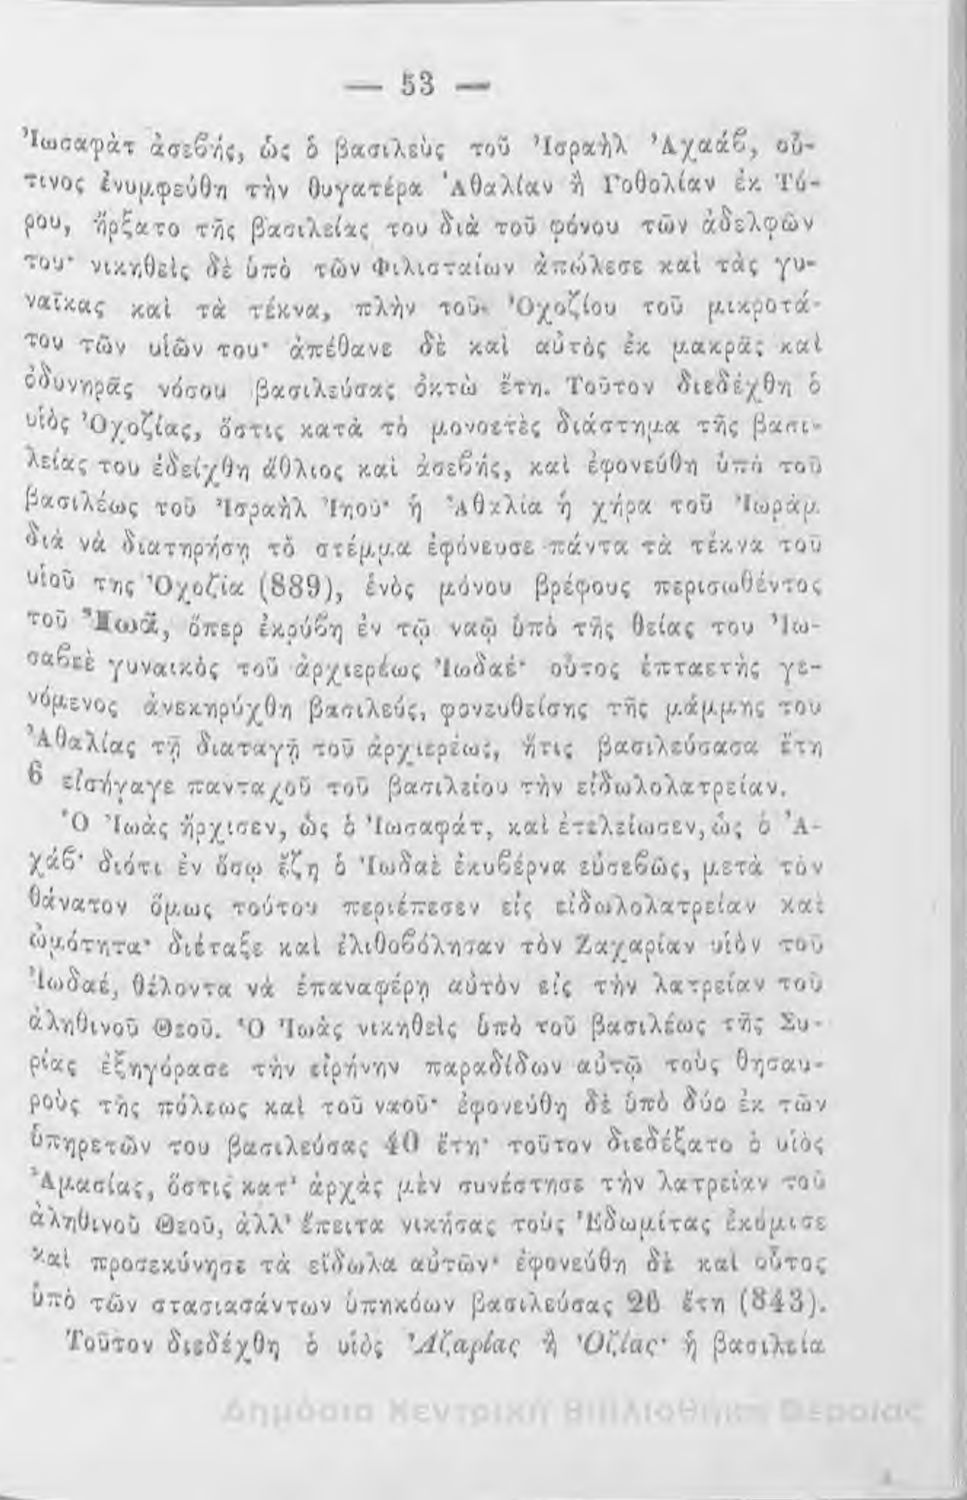 — 53 —
Ἰωσαφὰτ ἀσεβής, ὡς ὁ βασιλεὺς τοῦ Ἰσραὴλ Ἀχαάβ, οὗ-
τινος ἐνυμφεύθη τὴν θυγατέρα Ἀθαλίαν ἢ Γοθολίαν ἐκ Τύ-
ρου, ἤρξατο τῆς βασιλείας του διὰ τοῦ φόνου τῶν ἀδελφῶν
του· νικηθεὶς δὲ ὑπὸ τῶν Φιλισταίων ἀπώλεσε καὶ τὰς γυ-
ναῖκας καὶ τὰ τέκνα, πλὴν τοῦ Ὀχοζίου τοῦ μικροτά-
του τῶν υἱῶν του· ἀπέθανε δὲ καὶ αὐτὸς ἐκ μακρᾶς καὶ
ὀδυνηρᾶς νόσου βασιλεύσας ὀκτὼ ἔτη. Τοῦτον διεδέχθη ὁ
υἱὸς Ὀχοζίας, ὅστις κατὰ τὸ μονοετὲς διάστημα τῆς βασι-
λείας του ἐδείχθη ἄθλιος καὶ ἀσεβής, καὶ ἐφονεύθη ὑπὸ τοῦ
βασιλέως τοῦ Ἰσραὴλ Ἰηού· ἡ Ἀθαλία ἡ χήρα τοῦ Ἰωρὰμ
διὰ νὰ διατηρήσῃ τὸ στέμμα ἐφόνευσε πάντα τὰ τέκνα τοῦ
υἱοῦ της Ὀχοζία (889), ἑνὸς μόνου βρέφους περισωθέντος
τοῦ Ἰωᾶ, ὅπερ ἐκρύβη ἐν τῷ ναῷ ὑπὸ τῆς θείας του Ἰω-
σαβεὲ γυναικὸς τοῦ ἀρχιερέως Ἰωδαέ· οὗτος ἑπταετὴς γε-
νόμενος ἀνεκηρύχθη βασιλεύς, φονευθείσης τῆς μάμμης του
Ἀθαλίας τῇ διαταγῇ τοῦ ἀρχιερέως, ἥτις βασιλεύσασα ἔτη
6 εἰσήγαγε πανταχοῦ τοῦ βασιλείου τὴν εἰδωλολατρείαν.
Ὁ Ἰωὰς ἤρχισεν, ὡς ὁ Ἰωσαφάτ, καὶ ἐτελείωσεν, ὡς ὁ Ἀ-
χάβ· διότι ἐν ὅσῳ ἔζη ὁ Ἰωδαὲ ἐκυβέρνα εὐσεβῶς, μετὰ τὸν
θάνατον ὅμως τούτου περιέπεσεν εἰς εἰδωλολατρείαν καὶ
ὠμότητα· διέταξε καὶ ἐλιθοβόλησαν τὸν Ζαχαρίαν υἱὸν τοῦ
Ἰωδαέ, θέλοντα νὰ ἐπαναφέρῃ αὐτὸν εἰς τὴν λατρείαν τοῦ
ἀληθινοῦ Θεοῦ. Ὁ Ἰωὰς νικηθεὶς ὑπὸ τοῦ βασιλέως τῆς Συ-
ρίας ἐξηγόρασε τὴν εἰρήνην παραδίδων αὐτῷ τοὺς θησαυ-
ροὺς τῆς πόλεως καὶ τοῦ ναοῦ· ἐφονεύθη δὲ ὑπὸ δύο ἐκ τῶν
ὑπηρετῶν του βασιλεύσας 40 ἔτη· τοῦτον διεδέξατο ὁ υἱὸς
Ἀμασίας, ὅστις κατ' ἀρχὰς μὲν συνέστησε τὴν λατρείαν τοῦ
ἀληθινοῦ Θεοῦ, ἀλλ' ἔπειτα νικήσας τοὺς Ἐδωμίτας ἐκόμισε
καὶ προσεκύνησε τὰ εἴδωλα αὐτῶν· ἐφονεύθη δὲ καὶ οὗτος
ὑπὸ τῶν στασιασάντων ὑπηκόων βασιλεύσας 26 ἔτη (843).
Τοῦτον διεδέχθη ὁ υἱὸς Ἀζαρίας ἢ Ὀζίας· ἡ βασιλεία
Δημόσια Κεντρική Βιβλιοθήκη Βέροιας